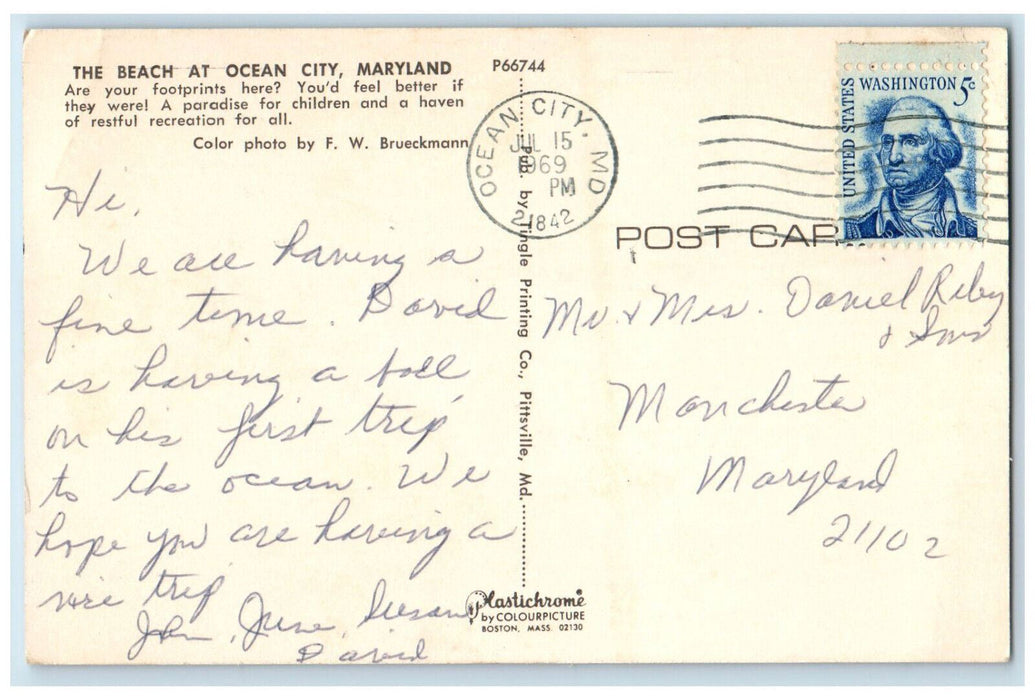 THE BEACH AT OCEAN CITY, MARYLAND
Are your footprints here? You'd feel better if
they were! A paradise for children and a haven
of restful recreation for all.
Color photo by F. W. Brueckmann
P66744
OCEAN CITY, MD
JUL 15
1969
PM
21842
UNITED STATES
WASHINGTON 5c
POST CAR
Pub. by Tingle Printing Co., Pittsville, Md.
Hi,
We are having a
fine time. David
is having a ball
on his first trip
to the ocean. We
hope you are having a
nice trip
John, June, Susan
David
Mr. & Mrs. Daniel Riley
& Sons
Manchester
Maryland
21102
Plastichrome
by COLOURPICTURE
BOSTON, MASS. 02130